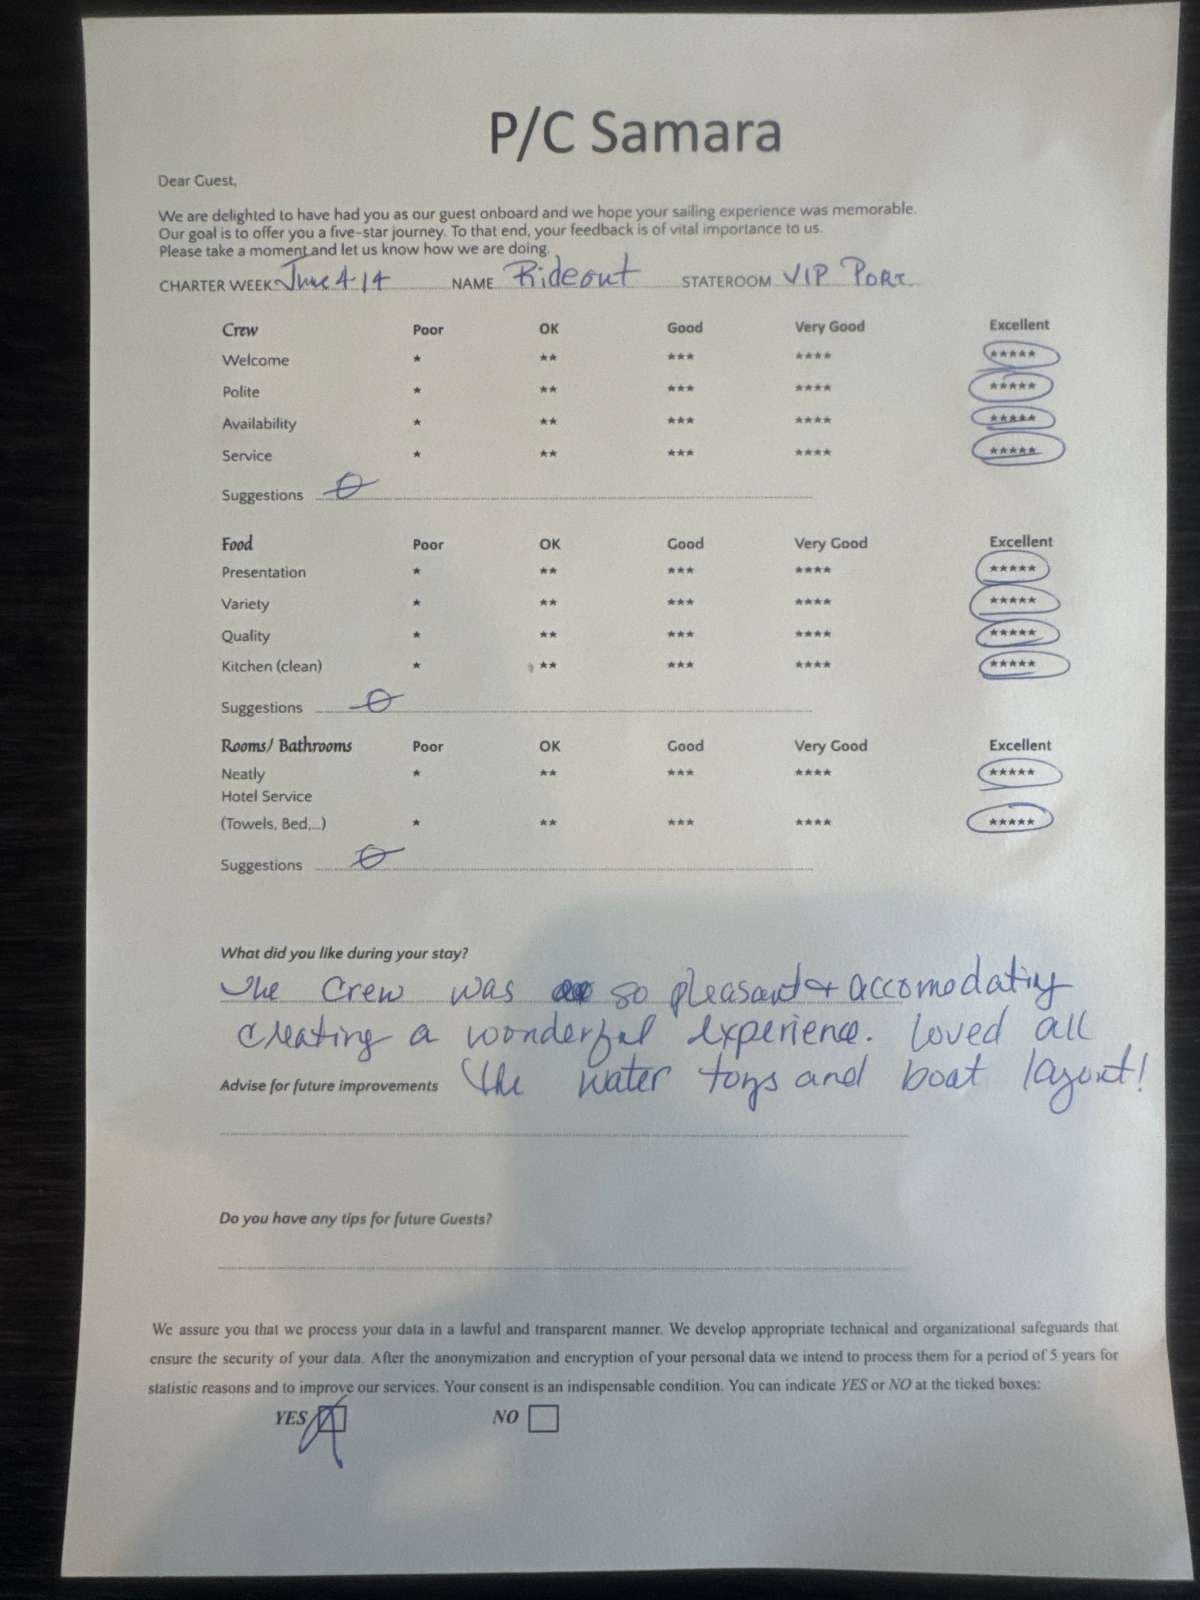 P/C Samara
Dear Guest,
We are delighted to have had you as our guest onboard and we hope your sailing experience was memorable.
Our goal is to offer you a five-star journey. To that end, your feedback is of vital importance to us.
Please take a moment and let us know how we are doing.
CHARTER WEEK June 4-14 NAME Rideout STATEROOM VIP PORT.
Crew Poor OK Good Very Good Excellent
Welcome * ** *** **** *****
Polite * ** *** **** *****
Availability * ** *** **** *****
Service * ** *** **** *****
Suggestions
Food Poor OK Good Very Good Excellent
Presentation * ** *** **** *****
Variety * ** *** **** *****
Quality * ** *** **** *****
Kitchen (clean) * ** *** **** *****
Suggestions
Rooms/ Bathrooms Poor OK Good Very Good Excellent
Neatly * ** *** **** *****
Hotel Service
(Towels, Bed,...) * ** *** **** *****
Suggestions
What did you like during your stay?
The Crew was so pleasant + accomodating
creating a wonderful experience. Loved all
Advise for future improvements the water toys and boat layout!
Do you have any tips for future Guests?
We assure you that we process your data in a lawful and transparent manner. We develop appropriate technical and organizational safeguards that
ensure the security of your data. After the anonymization and encryption of your personal data we intend to process them for a period of 5 years for
statistic reasons and to improve our services. Your consent is an indispensable condition. You can indicate YES or NO at the ticked boxes:
YES NO